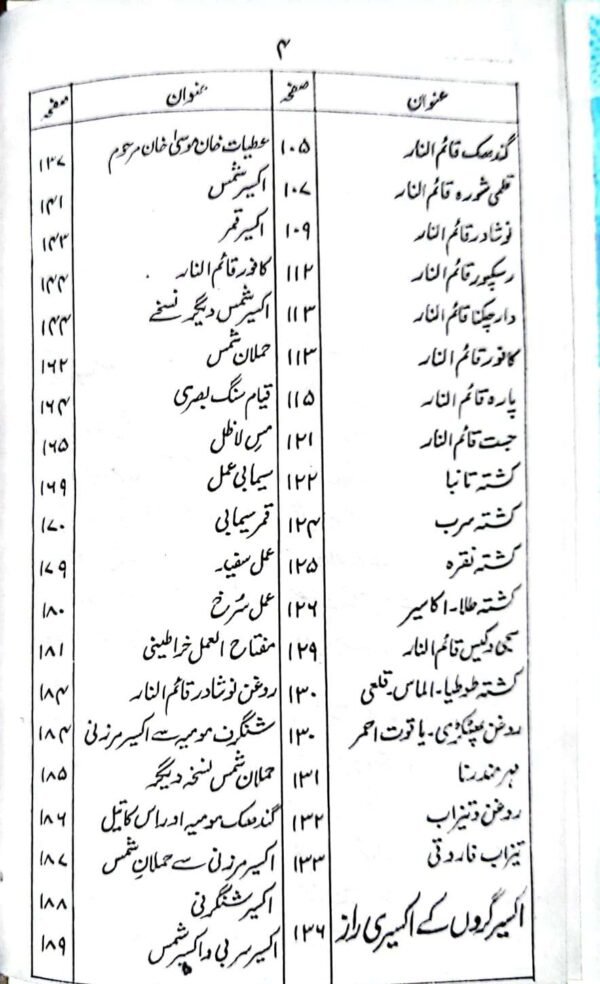 ۴
عنوان صفحہ
گندھک قائم النار ۱۰۵
قلمی شورہ قائم النار ۱۰۷
نوشادر قائم النار ۱۰۹
رسکپور قائم النار ۱۱۲
دارچکنا قائم النار ۱۱۳
کافور قائم النار ۱۱۳
پارہ قائم النار ۱۱۵
جست قائم النار ۱۲۱
کشتہ تانبا ۱۲۲
کشتہ سرب ۱۲۴
کشتہ نقرہ ۱۲۵
کشتہ طلا۔ اکاسیر ۱۲۶
سجی قائم النار ۱۲۹
کشتہ طوطیا۔ الماس۔ قلعی ۱۳۰
روغن پھٹکڑی۔ یاقوت احمر ۱۳۰
۱۳۱
روغن و تیزاب ۱۳۲
تیزاب فاروقی ۱۳۳
اکسیر گروں کے اکسیری راز ۱۳۶
عنوان صفحہ
عطیات خان موسیٰ خان مرحوم ۱۳۷
اکسیر شمس ۱۴۱
اکسیر قمر ۱۴۳
کافور قائم النار ۱۴۴
اکسیر شمس دیگر نسخے ۱۴۴
حملان شمس ۱۶۲
قیام سنگ بصری ۱۶۴
مس لاظل ۱۶۵
سیمابی عمل ۱۶۹
قمر سیمابی ۱۷۰
عمل سفید ۱۷۹
عمل سرخ ۱۸۰
مفتاح العمل خراطینی ۱۸۱
روغن نوشادر قائم النار ۱۸۴
شنگرف مومیہ سے اکسیر مرزنی ۱۸۴
حملان شمس نسخہ دیگر ۱۸۵
گندھک مومیہ اور اس کا تیل ۱۸۶
اکسیر مرزنی سے حملانِ شمس ۱۸۷
اکسیر شنگرفی ۱۸۸
اکسیر سربی و اکسیر شمس ۱۸۹